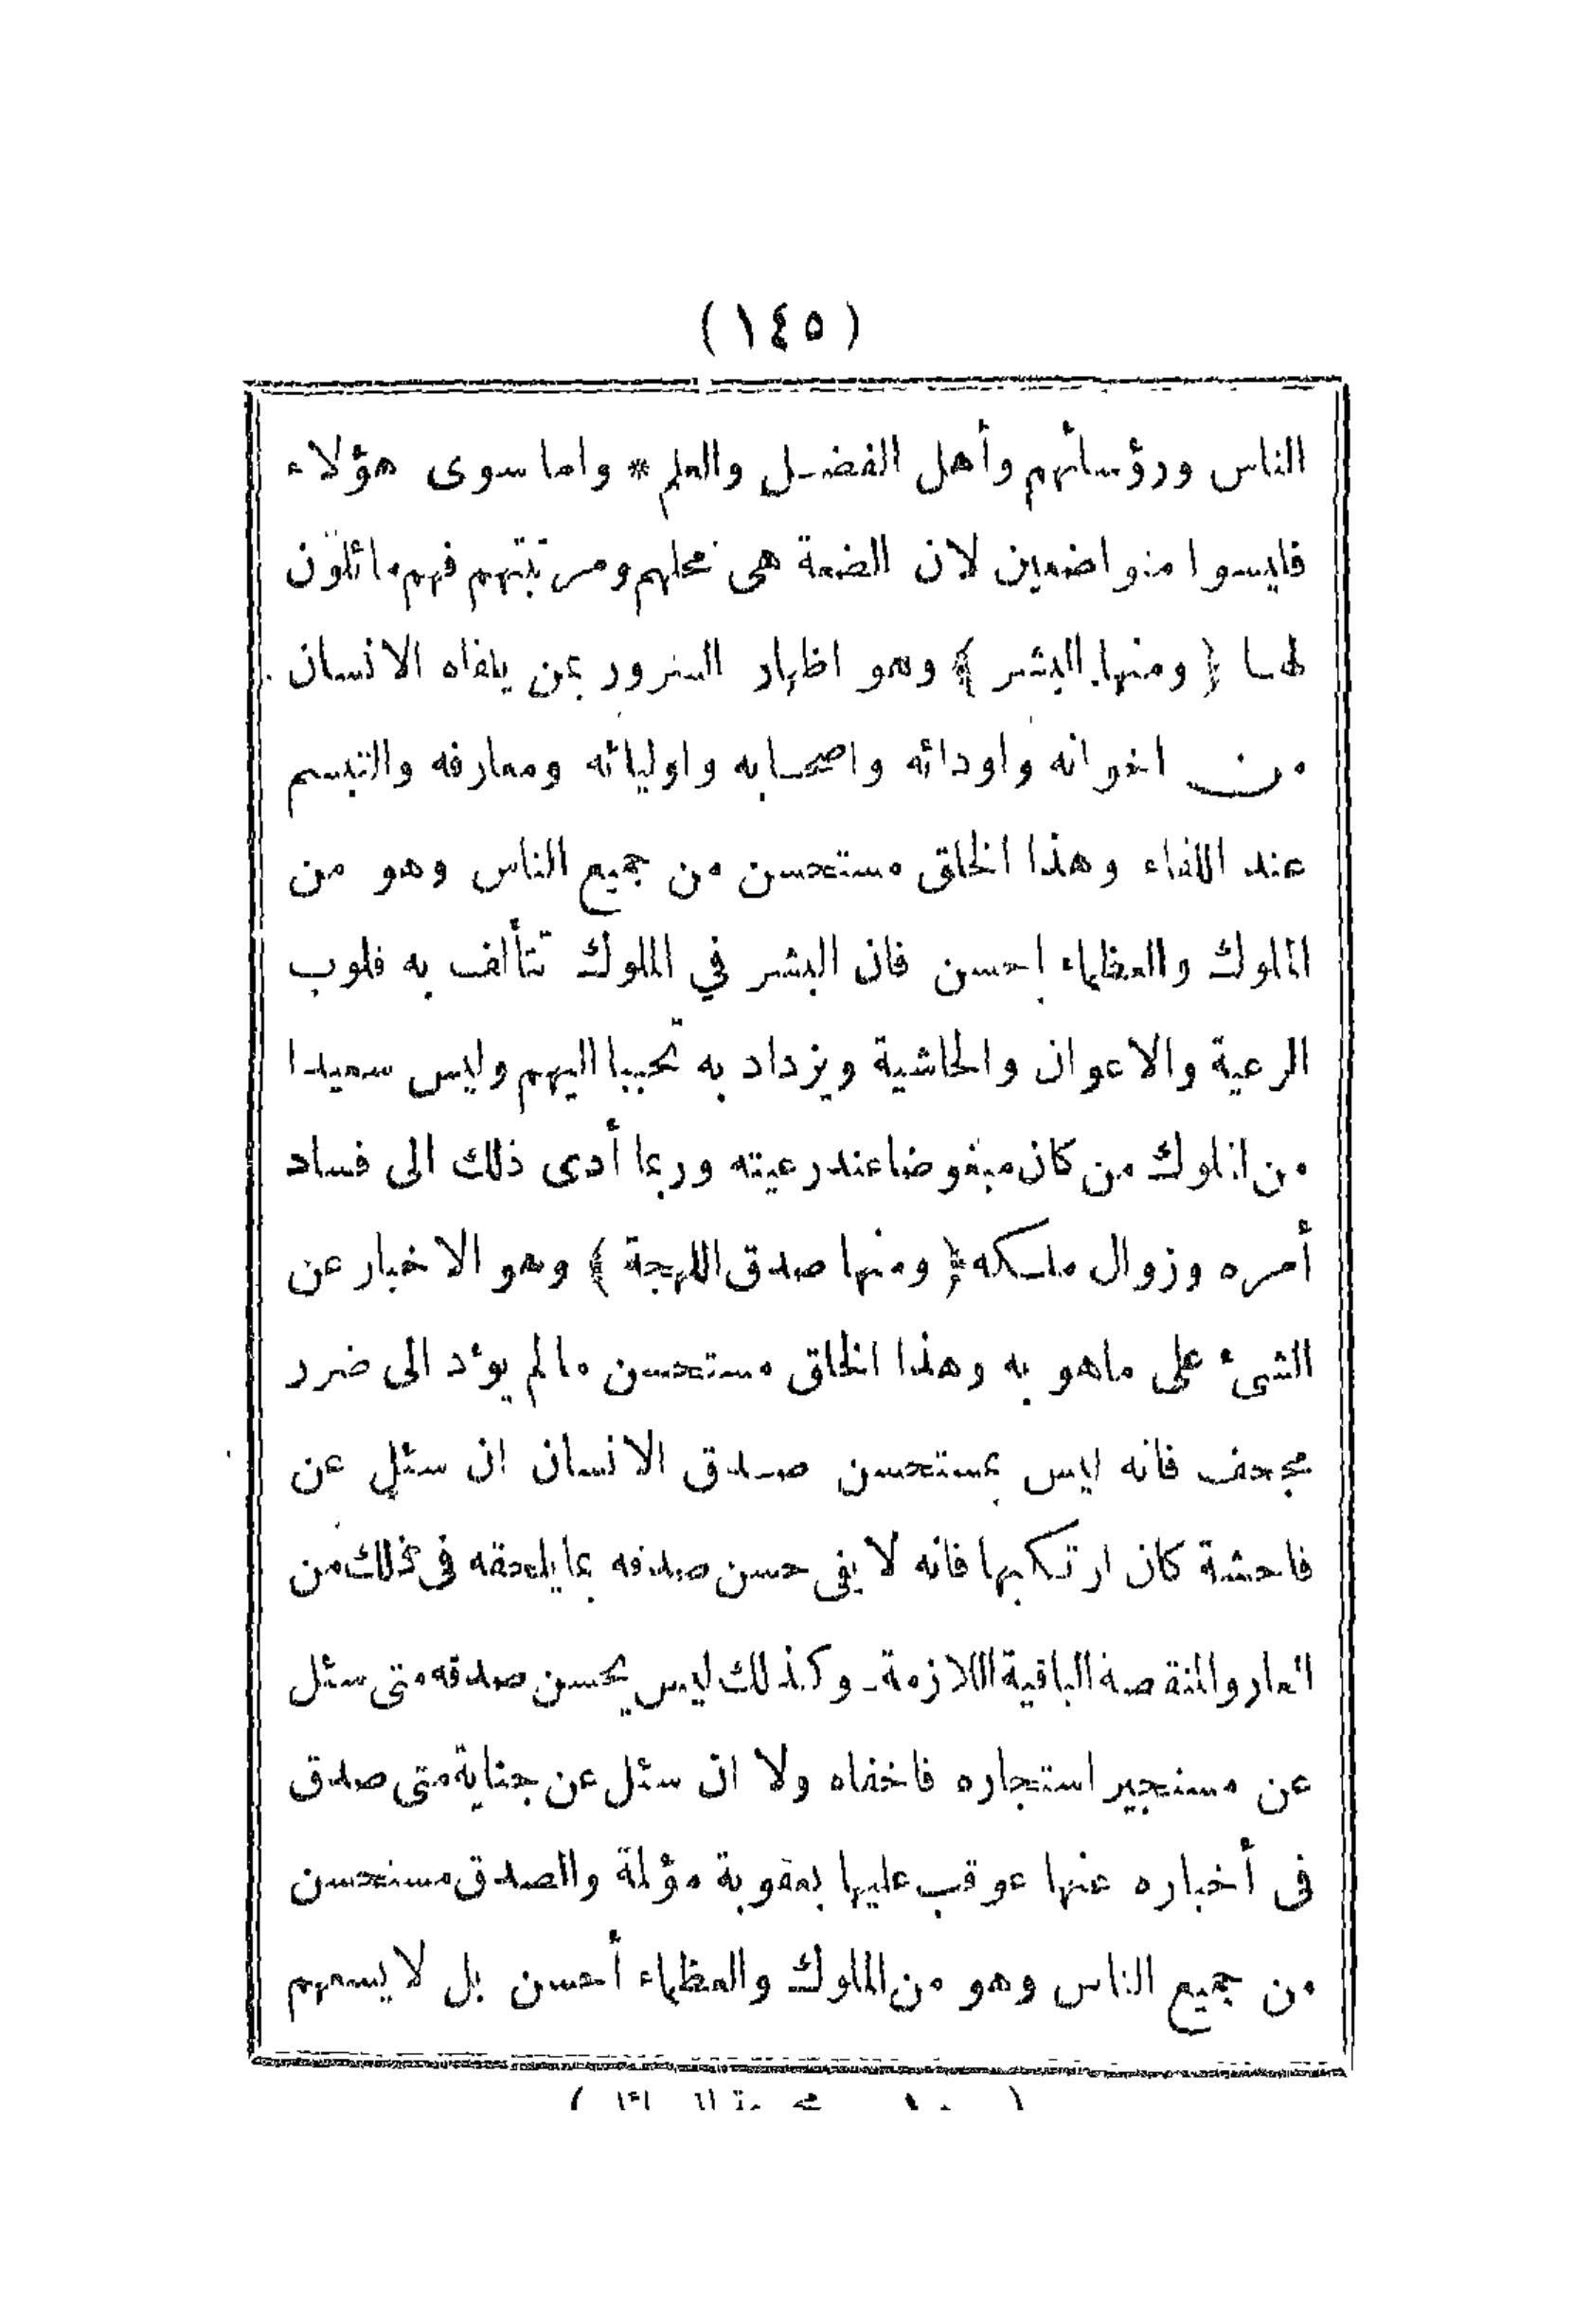 (١٤٥)
الناس ورؤسائهم وأهل الفضل والعلم * واما سوى هؤلاء
فليسوا متواضعين لان الضعة هى محلهم ومرتبتهم فهم مائلون
لها ﴿ ومنها البشر ﴾ وهو اظهار السرور بمن يلقاه الانسان
من اخوانه واودائه واصحابه واوليائه ومعارفه والتبسم
عند اللقاء وهذا الخلق مستحسن من جميع الناس وهو من
الملوك والعظماء احسن فان البشر في الملوك تتألف به قلوب
الرعية والاعوان والحاشية ويزداد به تحببا اليهم وليس سعيدا
من الملوك من كان مبغوضا عند رعيته وربما أدى ذلك الى فساد
أمره وزوال ملكه ﴿ ومنها صدق اللهجة ﴾ وهو الاخبار عن
الشئ على ماهو به وهذا الخلق مستحسن مالم يؤد الى ضرر
مجحف فانه ليس بمستحسن صدق الانسان ان سئل عن
فاحشة كان ارتكبها فانه لا يفى حسن صدقه بما يلحقه فى ذلك من
العار والمنقصة الباقية اللازمة وكذلك ليس يحسن صدقه متى سئل
عن مستجير استجاره فاخفاه ولا ان سئل عن جناية متى صدق
فى أخباره عنها عوقب عليها بعقوبة مؤلمة والصدق مستحسن
من جميع الناس وهو من الملوك والعظماء أحسن بل لا يسعهم